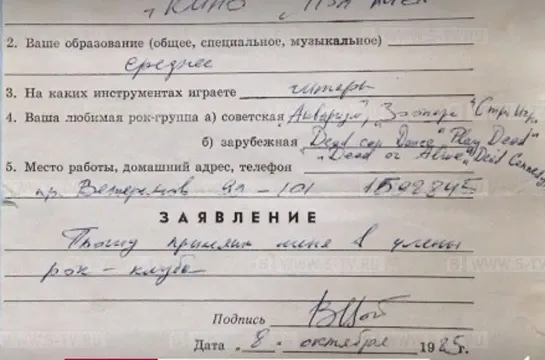 "КИНО"
2. Ваше образование (общее, специальное, музыкальное)
среднее
3. На каких инструментах играете гитары
4. Ваша любимая рок-группа а) советская "Аквариум", "Зоопарк" "Стр. Игры"
б) зарубежная "Dead can Dance" "Play Dead"
"Dead or Alive" "Dead Kennedys
5. Место работы, домашний адрес, телефон
пр. Ветеранов 99 - 101 1592245
ЗАЯВЛЕНИЕ
Прошу принять меня в члены
рок - клуба
Подпись ВЦой
Дата „8" октября 1985 г.